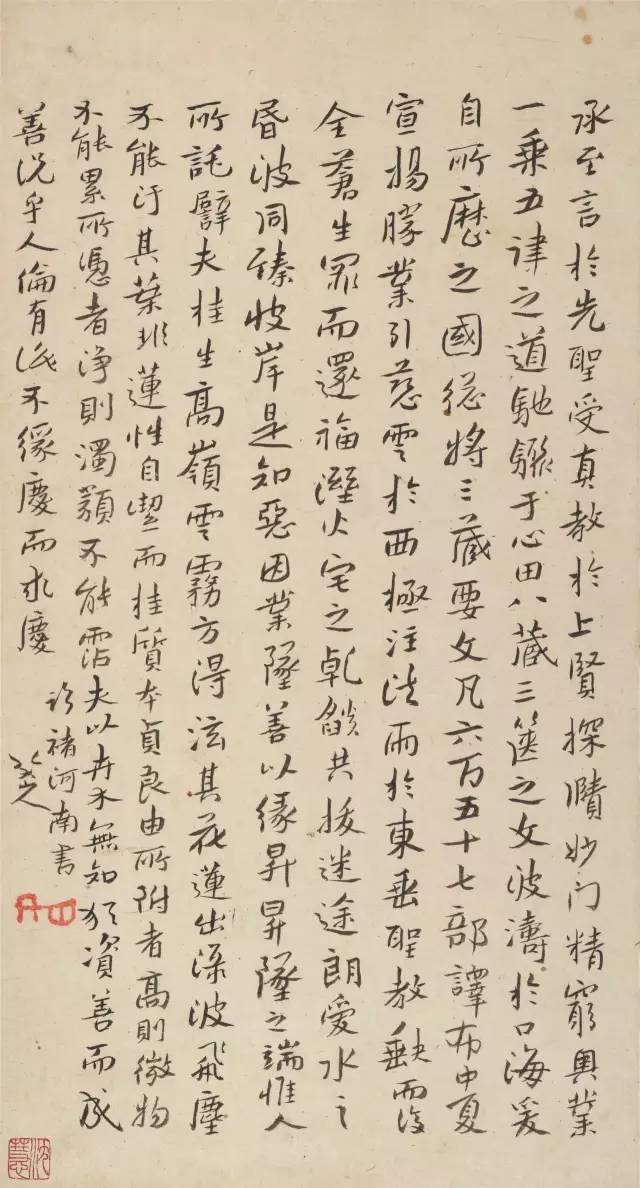 承至言於先聖受真教於上賢探賾妙门精窮奥業
一乘五律之道馳驟于心田八藏三篋之文波濤於口海爰
自所歷之國總將三藏要文凡六百五十七部譯布中夏
宣揚勝業引慈雲於西極注法雨於東垂聖教缺而復
全蒼生罪而還福溼火宅之乾燄共拔迷途朗愛水之
昏波同臻彼岸是知惡因業墜善以緣昇昇墜之端惟人
所託譬夫桂生高嶺雲霧方得泫其花蓮出淥波飛塵
不能汙其葉非蓮性自潔而桂質本貞良由所附者高則微物
不能累所憑者淨則濁類不能霑夫以卉木無知猶資善而成
善況乎人倫有識不緣慶而求慶
臨褚河南書
八大山人